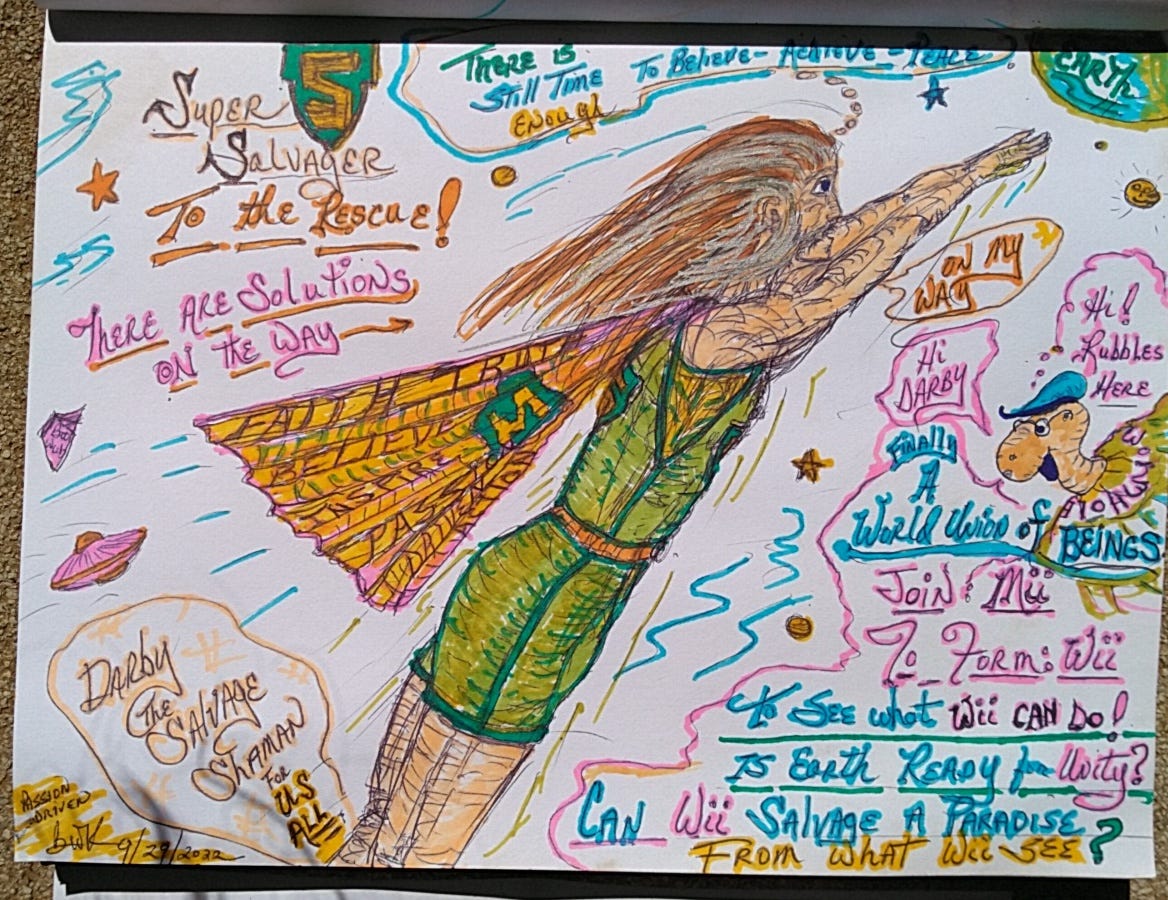 S
SUPER
SALVAGER
TO THE RESCUE!
THERE ARE SOLUTIONS
ON THE WAY
THERE IS
STILL TIME
ENOUGH
TO BELIEVE - ACHIEVE - PEACE
EARTH
ON MY
WAY
HI
DARBY
Hi!
Rubbles
HERE
FAITH
BELIEVE
M
FINALLY
A
WORLD UNION of
BEINGS
JOIN: Mii
TO FORM: Wii
To SEE what Wii CAN DO!
IS EARTH READY for Unity?
CAN Wii SALVAGE A PARADISE
FROM WHAT Wii SEE?
DARBY
THE
SALVAGE
SHAMAN
FOR
US
ALL
PASSION
DRIVEN
BWK 9/29/2022